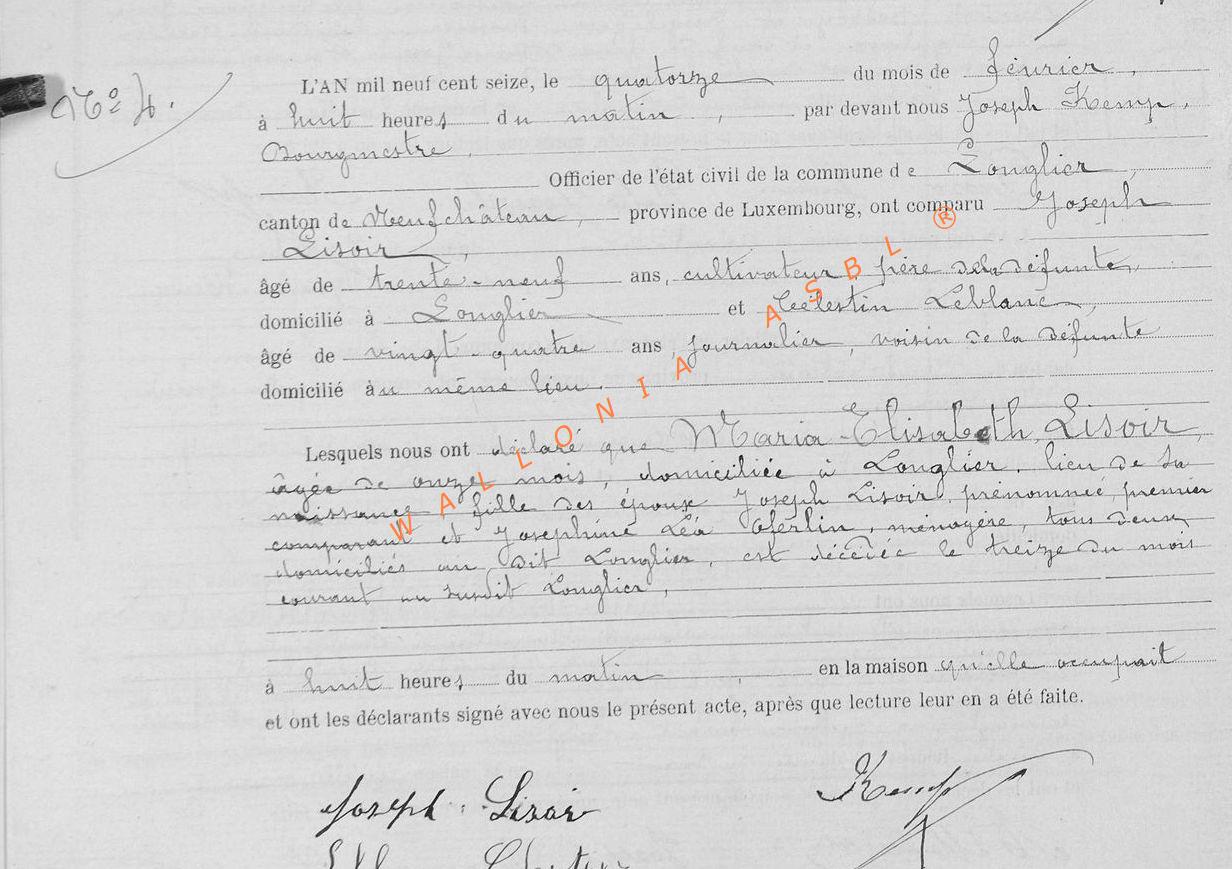 N° 4.
L'AN mil neuf cent seize, le quatorze du mois de février,
à huit heures du matin, par devant nous Joseph Kemp,
Bourgmestre,
Officier de l'état civil de la commune de Longlier,
canton de Neufchâteau, province de Luxembourg, ont comparu Joseph
Lisoir,
âgé de trente-neuf ans, cultivateur, père de la défunte,
domicilié à Longlier et Célestin Leblanc,
âgé de vingt-quatre ans, journalier, voisin de la défunte
domicilié au même lieu.
Lesquels nous ont déclaré que Maria-Elisabeth Lisoir,
âgée de onze mois, domiciliée à Longlier, lieu de sa
naissance, fille des époux Joseph Lisoir, prénommé, premier
comparant et Joséphine Léa, ménagère, tous deux
domiciliés au dit Longlier, est décédée le treize du mois
courant au susdit Longlier,
à huit heures du matin, en la maison qu'elle occupait
et ont les déclarants signé avec nous le présent acte, après que lecture leur en a été faite.
Joseph Lisoir Kemp
WALLONIA ASBL ®